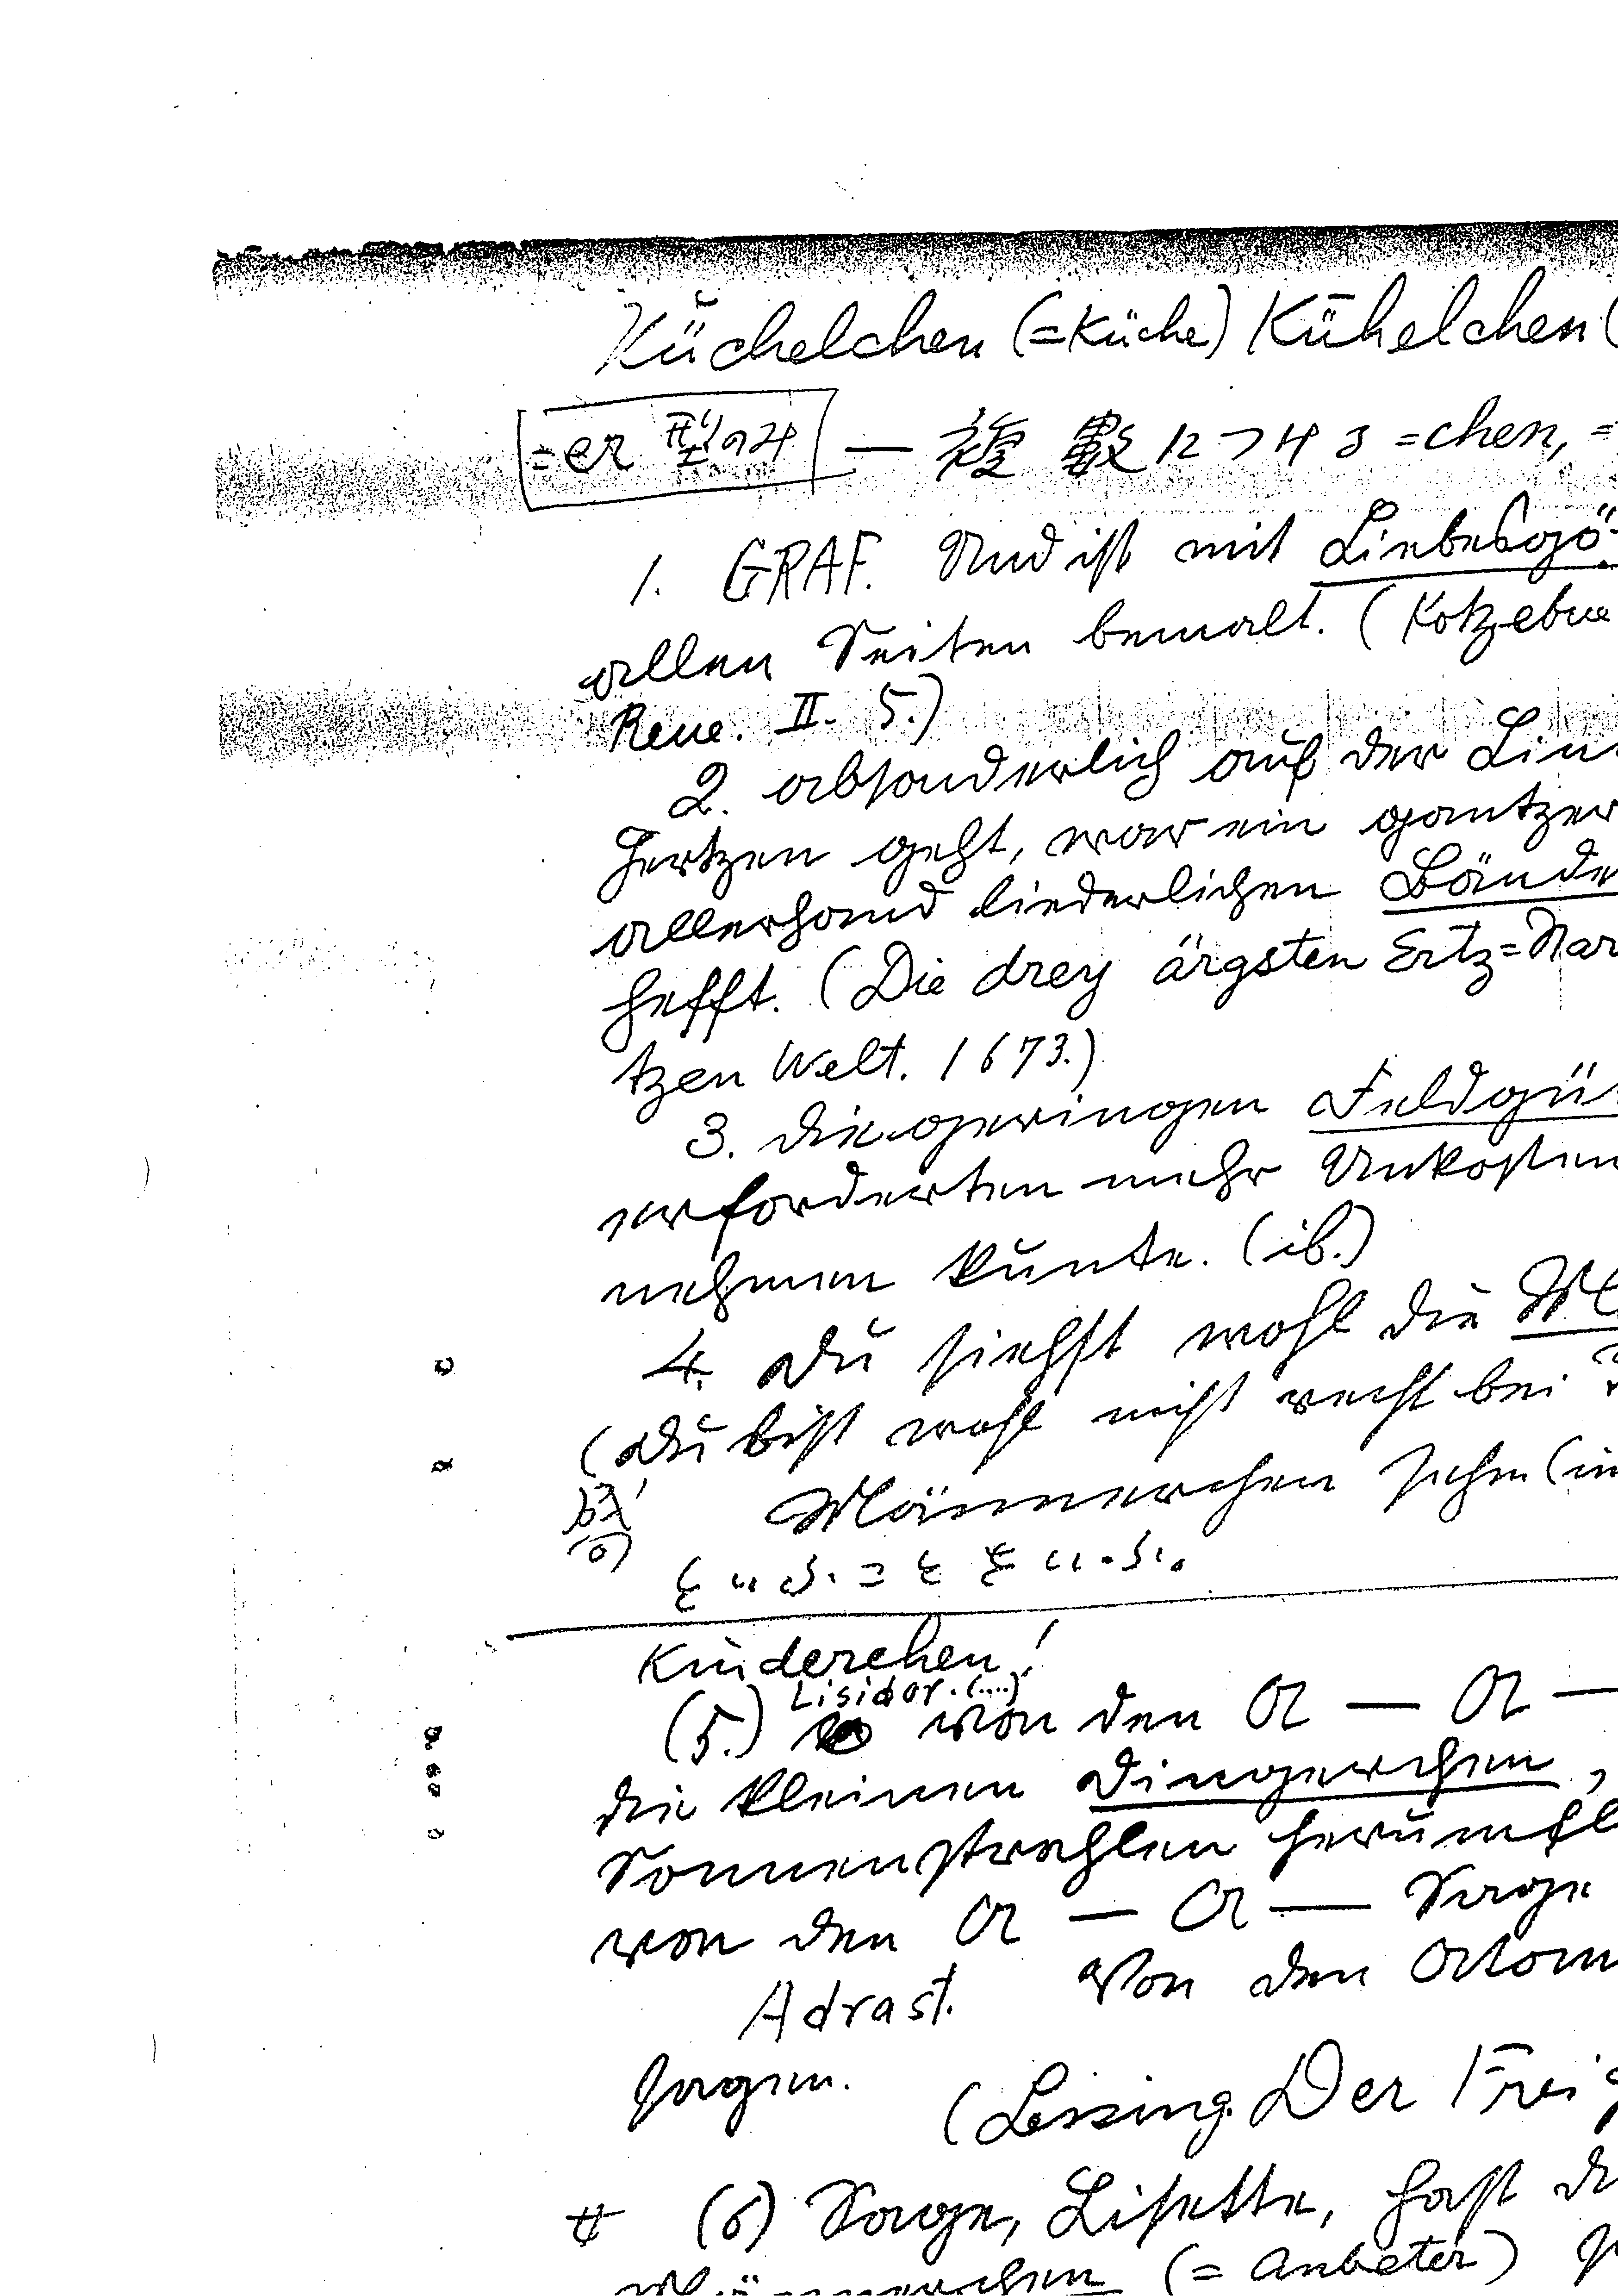 Küchelchen (=Küche) Kühelchen (
=er 型のみ — 複數につける =chen, =
1. GRAF. Und ist mit Liebesgö
allen Seiten bemalt. (Kotzebue
Reue. II. 5.)
2. absonderlich auf der Lin
Hertzen geht, war ein gantzer
allerhand liederlichen Bände
hefft. (Die drey ärgsten Ertz=Nar
tzen Welt. 1673.)
3. die geringen Feldgü
erforderten mehr Unkosten
nehmen kunte. (ib.)
4. Du siehst wohl die M
(Du bist wohl nicht recht bei
Männerchen sehen (in
Kinderchen!
Lisidor. (....)
(5.) von den A — A —
die kleinen Dingerchen,
Sonnenstrahlen herumfl
von den A — A — Sage
Adrast. Von den Atom
sagen.
(Lessing. Der Frei
# (6) Sage, Lisette, hast d
Männerchen (= Anbeter)